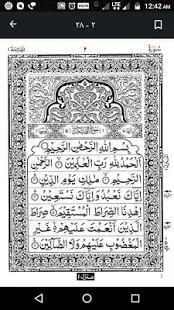 LTE 12:42 AM
٢ - ٢٨
٢
بِسْمِ اللهِ الرَّحْمٰنِ الرَّحِيْمِ
اَلْحَمْدُ لِلّٰهِ رَبِّ الْعٰلَمِيْنَ ۝ الرَّحْمٰنِ
الرَّحِيْمِ ۝ مٰلِكِ يَوْمِ الدِّيْنِ ۝
اِيَّاكَ نَعْبُدُ وَاِيَّاكَ نَسْتَعِيْنُ ۝
اِهْدِنَا الصِّرَاطَ الْمُسْتَقِيْمَ ۝ صِرَاطَ
الَّذِيْنَ اَنْعَمْتَ عَلَيْهِمْ ۝ غَيْرِ
الْمَغْضُوْبِ عَلَيْهِمْ وَلَا الضَّآلِّيْنَ ۝